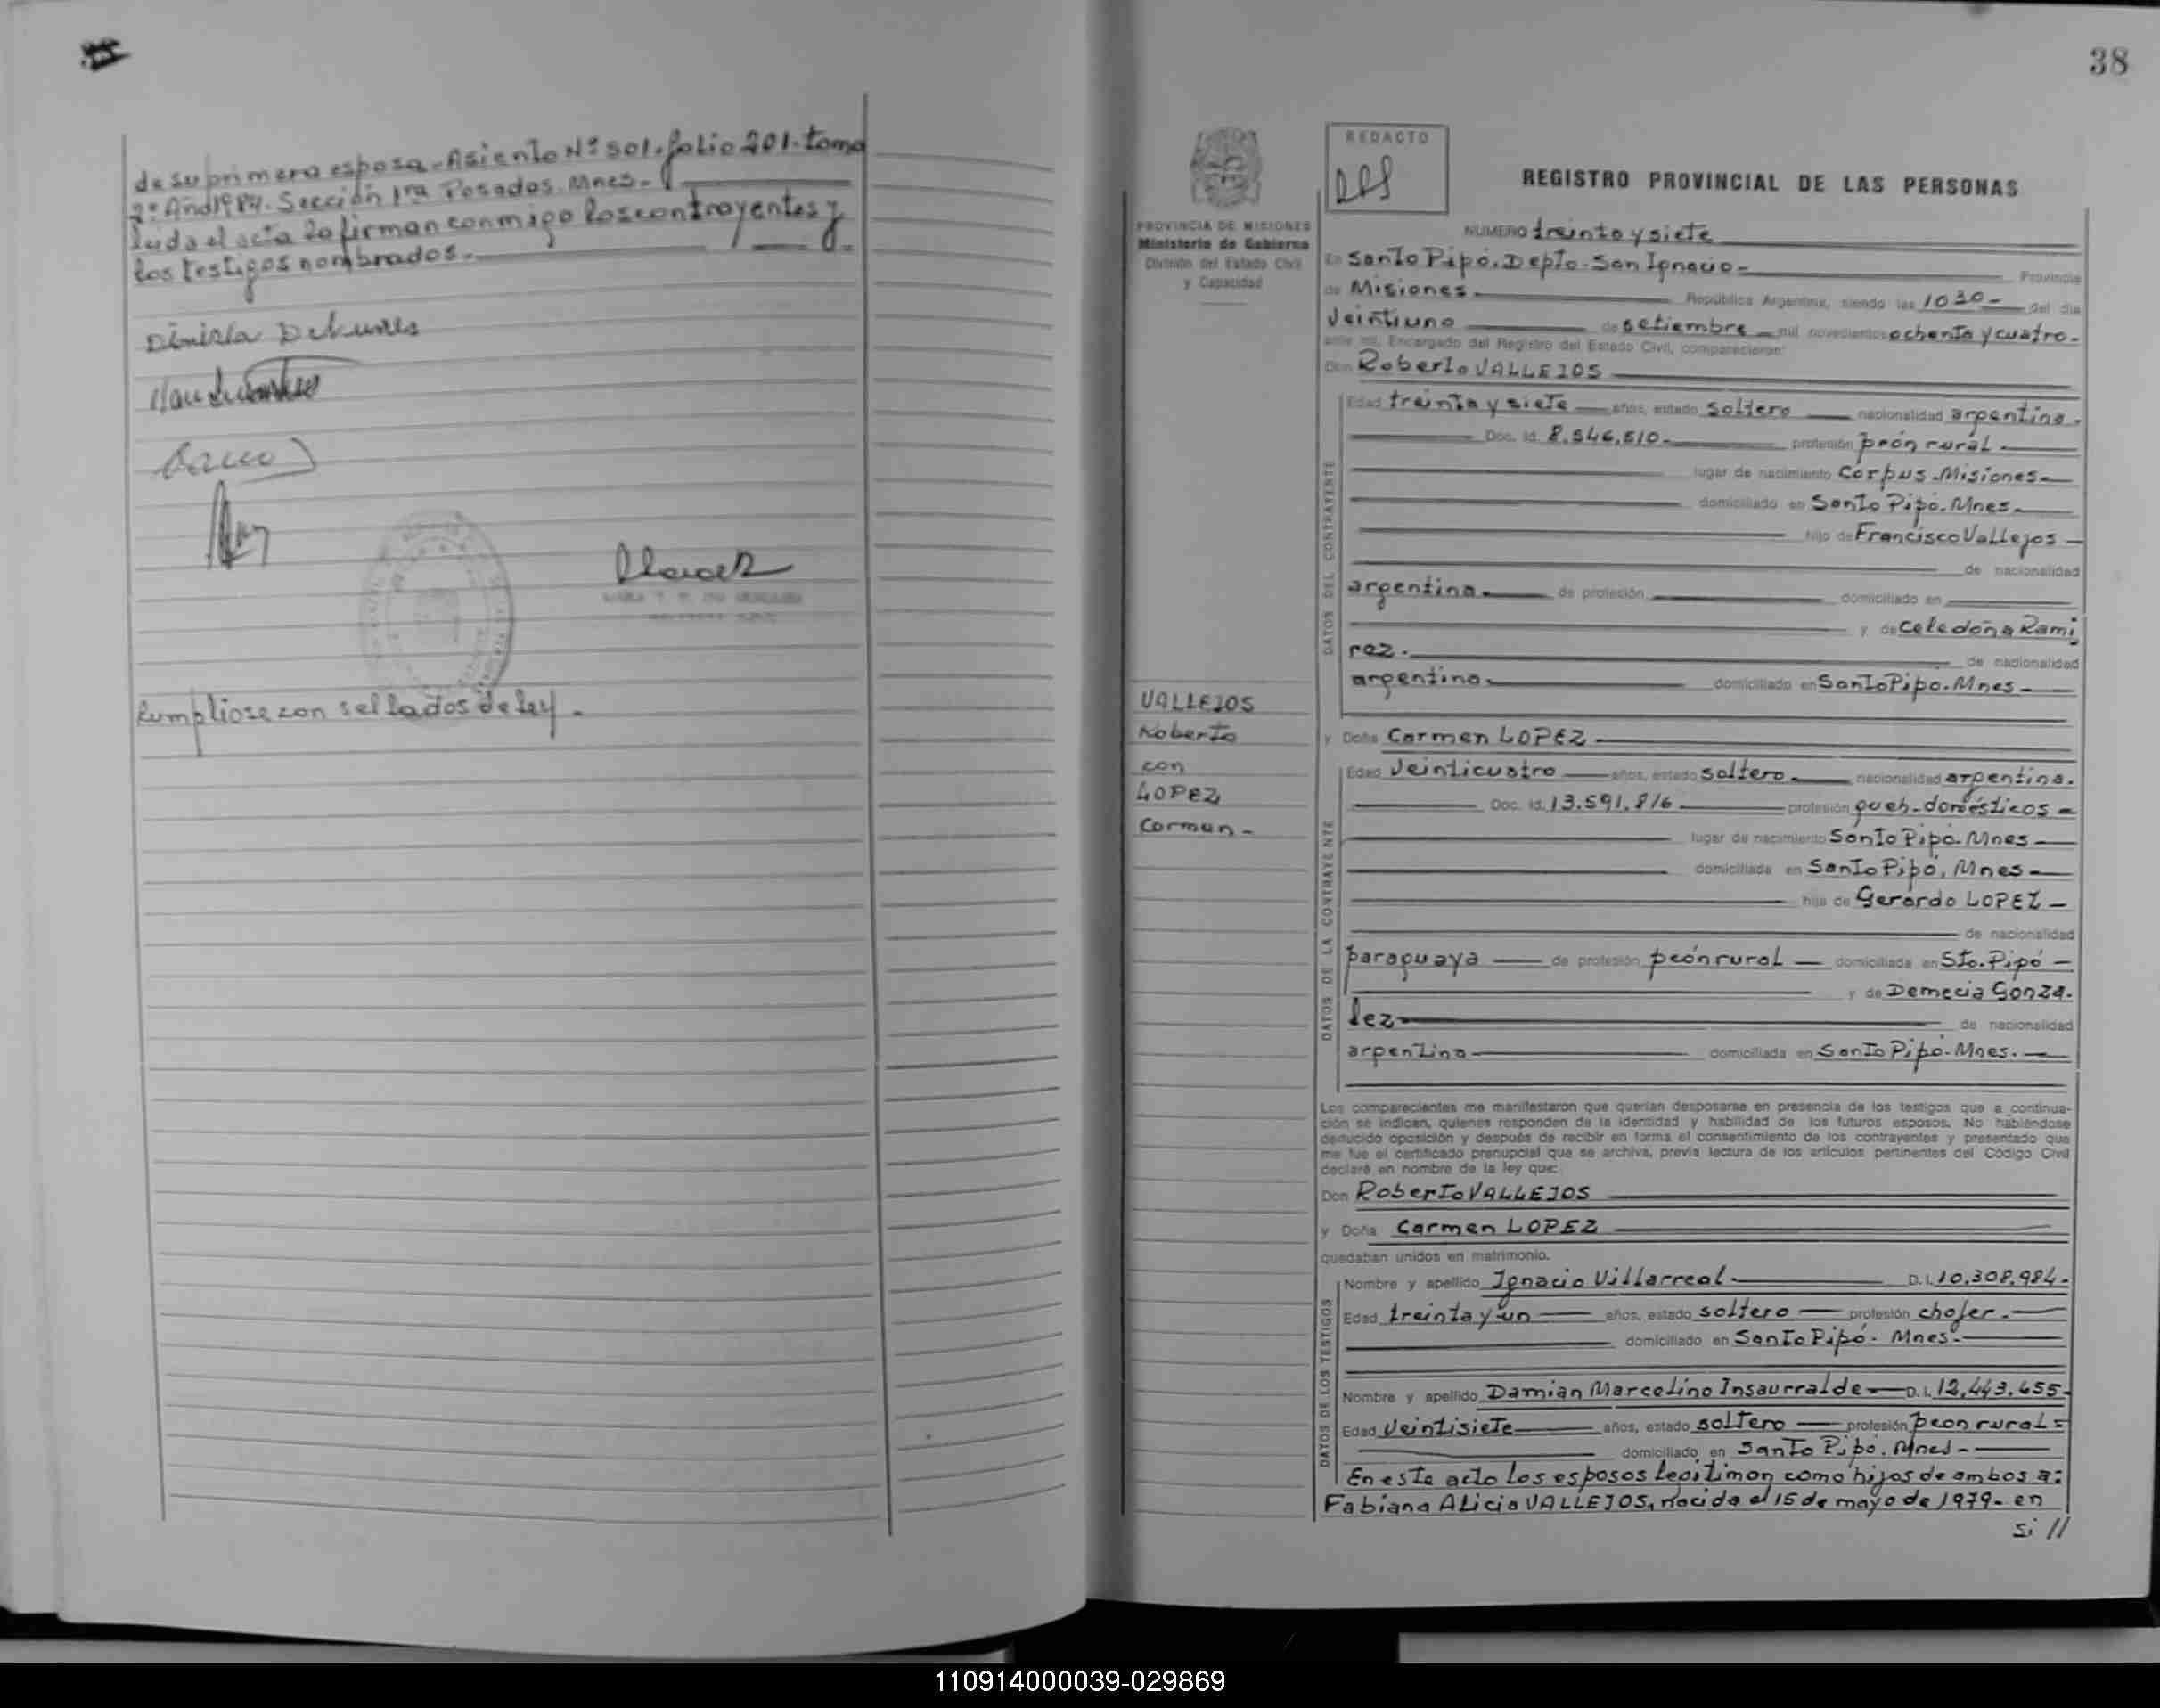 de su primera esposa - Asiento Nº 501. folio 201. tomo
2º Año 1984. Sección 1ra Posadas. Mnes. -
leida el acta la firman conmigo los contrayentes y
los testigos nombrados. -
Cumpliose con sellados de ley. -
38
REDACTO
REGISTRO PROVINCIAL DE LAS PERSONAS
PROVINCIA DE MISIONES
Ministerio de Gobierno
División del Estado Civil
y Capacidad
VALLEJOS
Roberto
con
LOPEZ
Carmen -
NUMERO treinta y siete
En Santo Pipó. Depto. San Ignacio - Provincia
de Misiones. República Argentina, siendo las 10 30 - del día
veintiuno de setiembre mil novecientos ochenta y cuatro.
ante mí, Encargado del Registro del Estado Civil, comparecieron:
Don Roberto VALLEJOS
DATOS DEL CONTRAYENTE
Edad treinta y siete años, estado soltero nacionalidad argentina.
Doc. Id. 8.546.510 - profesión peón rural
lugar de nacimiento Corpus. Misiones
domiciliado en Santo Pipó. Mnes.
hijo de Francisco Vallejos
de nacionalidad
argentina. de profesión domiciliado en
y de Celedoña Rami
rez. de nacionalidad
argentina. domiciliado en Santo Pipó. Mnes
y Doña Carmen LOPEZ
DATOS DE LA CONTRAYENTE
Edad veinticuatro años, estado soltera nacionalidad argentina.
Doc. Id. 13.591.816 profesión queh. domésticos
lugar de nacimiento Santo Pipó. Mnes
domiciliada en Santo Pipó. Mnes
hija de Gerardo LOPEZ
de nacionalidad
paraguaya de profesión peón rural domiciliada en Sto. Pipó
y de Demecia Gonza.
lez de nacionalidad
argentina domiciliada en Santo Pipó. Mnes.
Los comparecientes me manifestaron que querían desposarse en presencia de los testigos que a continua-
ción se indican, quienes responden de la identidad y habilidad de los futuros esposos. No habiéndose
deducido oposición y después de recibir en forma el consentimiento de los contrayentes y presentado que
me fue el certificado prenupcial que se archiva, previa lectura de los artículos pertinentes del Código Civil
declaré en nombre de la ley que:
Don Roberto VALLEJOS
y Doña Carmen LOPEZ
quedaban unidos en matrimonio.
DATOS DE LOS TESTIGOS
Nombre y apellido Ignacio Villarreal D.I. 10.308.984.
Edad treinta y un años, estado soltero profesión chofer.
domiciliado en Santo Pipó. Mnes.
Nombre y apellido Damian Marcelino Insaurralde D.I. 12.443.455.
Edad veintisiete años, estado soltero profesión peon rural
domiciliado en Santo Pipó. Mnes
En este acto los esposos legitiman como hijos de ambos a:
Fabiana Alicia VALLEJOS, nacida el 15 de mayo de 1979. en
si //
110914000039-029869